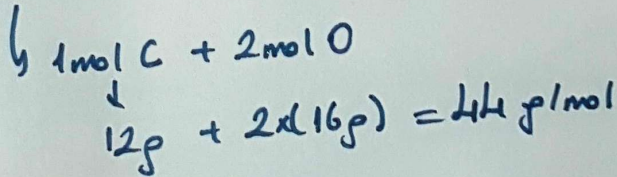 ↳ 1mol C + 2mol O
↓
12g + 2x(16g) = 44 g/mol